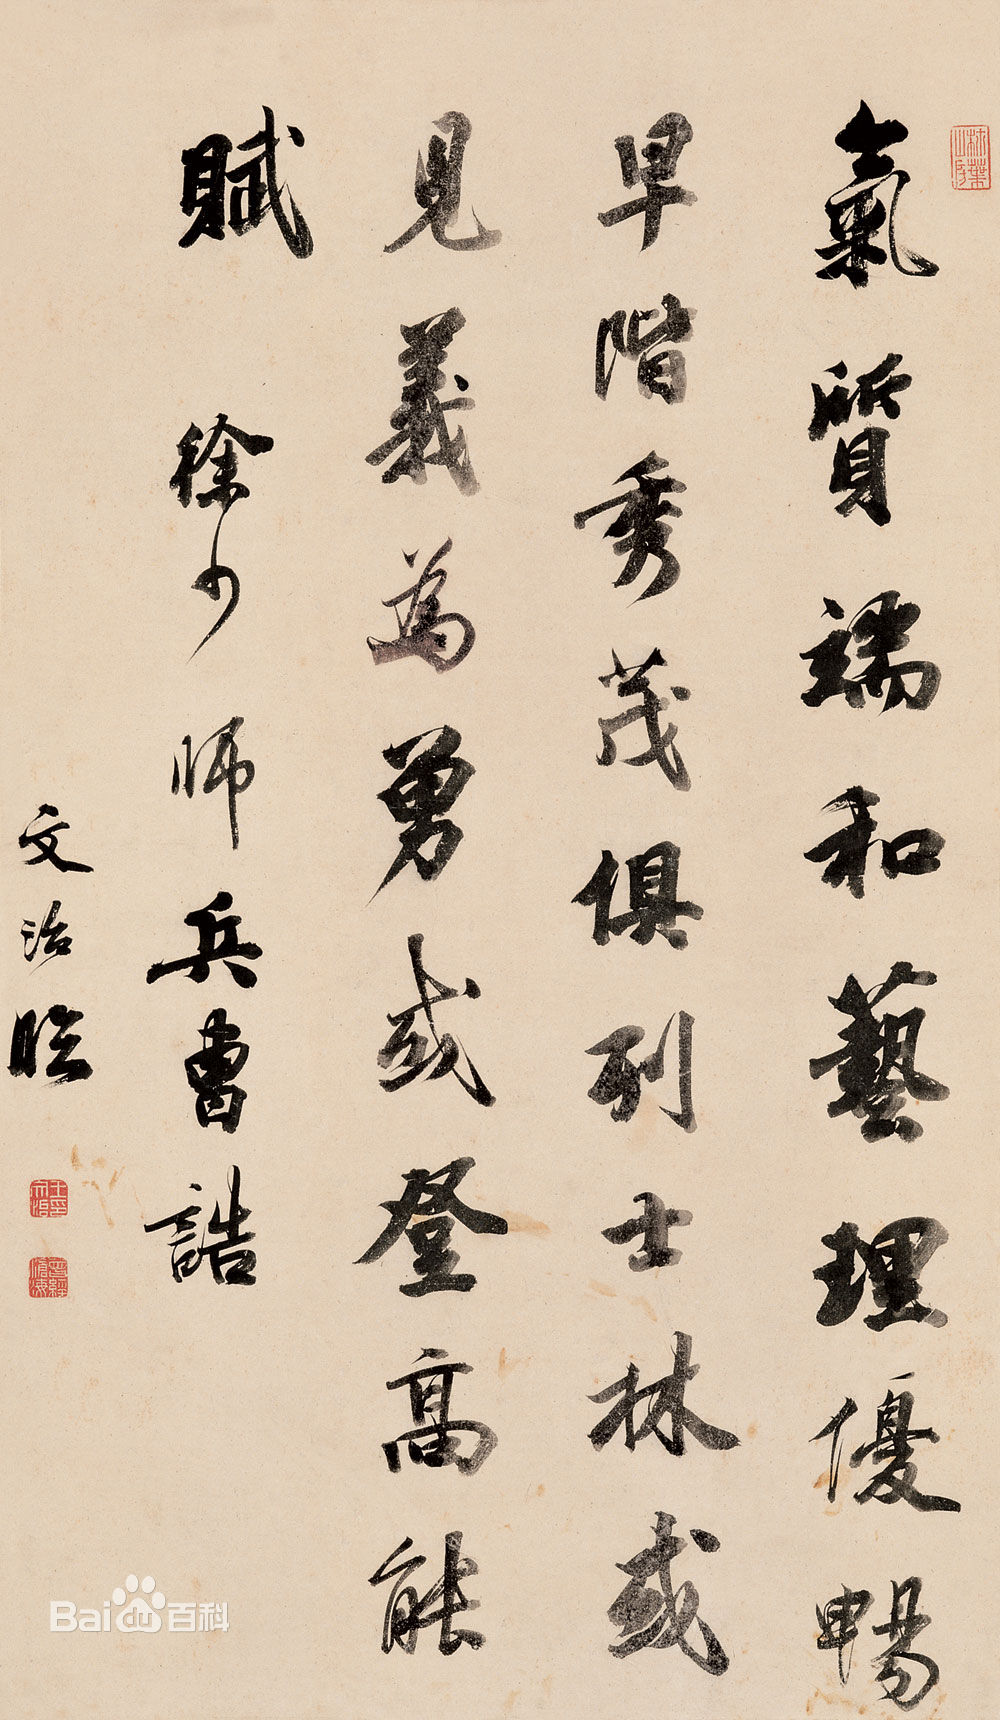 氣質端和藝理優暢
早階秀茂俱列士林或
見義為勇或登高能
賦 徐少師兵曹誥
文治臨
Bai百科